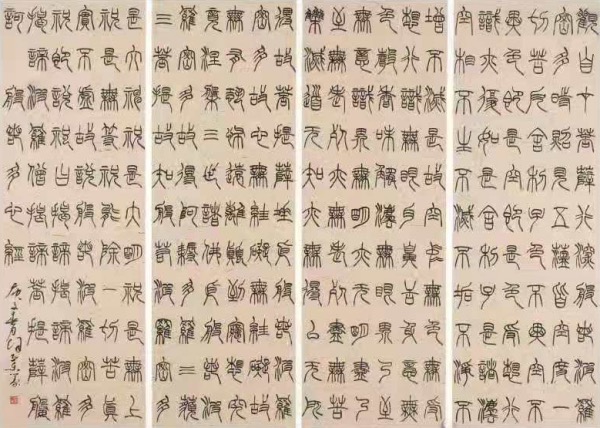 觀自在菩薩行深般若波羅
密多時照見五蘊皆空度一
切苦厄舍利子色不異空空不
異色色即是空空即是色受想行
識亦復如是舍利子是諸法
空相不生不滅不垢不淨不
增不減是故空中無色無受
想行識無眼耳鼻舌身意無
色聲香味觸法無眼界乃至
無意識界無無明亦無無明盡乃
至無老死亦無老死盡無苦
集滅道無智亦無得以無所
得故菩提薩埵依般若波羅
密多故心無罣礙無罣礙故
無有恐怖遠離顛倒夢想究
竟涅槃三世諸佛依般若波
羅密多故得阿耨多羅三藐
三菩提故知般若波羅密多
是大神咒是大明咒是無上
咒是無等等咒能除一切苦真
實不虛故說般若波羅密多
咒即說咒曰揭諦揭諦波羅
揭諦波羅僧揭諦菩提薩婆
訶 般若多心經